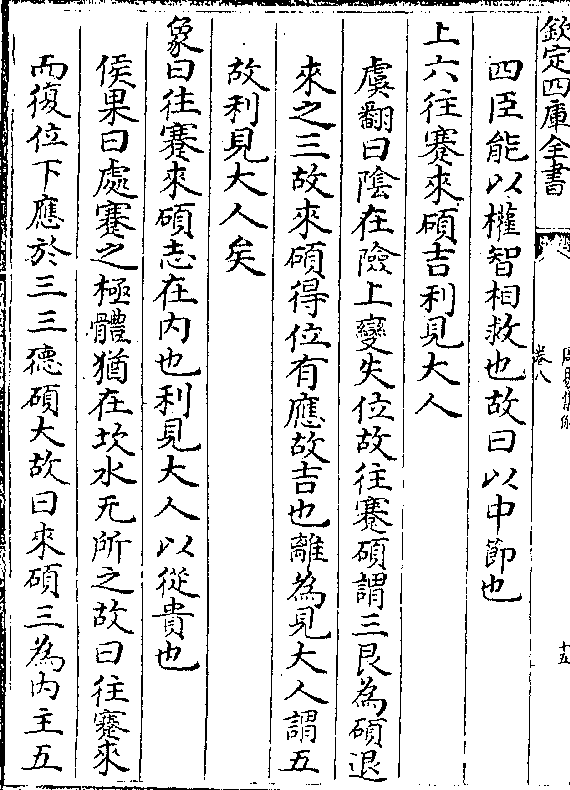 欽定四庫全書
卷八
十五
四臣能以權智相救也故曰以中節也
上六往蹇來碩吉利見大人
虞翻曰陰在險上變失位故往蹇碩謂三艮為碩退
來之三故來碩得位有應故吉也離為見大人謂五
故利見大人矣
象曰往蹇來碩志在内也利見大人以從貴也
侯果曰處蹇之極體猶在坎水无所之故曰往蹇來
而復位下應於三三德碩大故曰來碩三為内主五